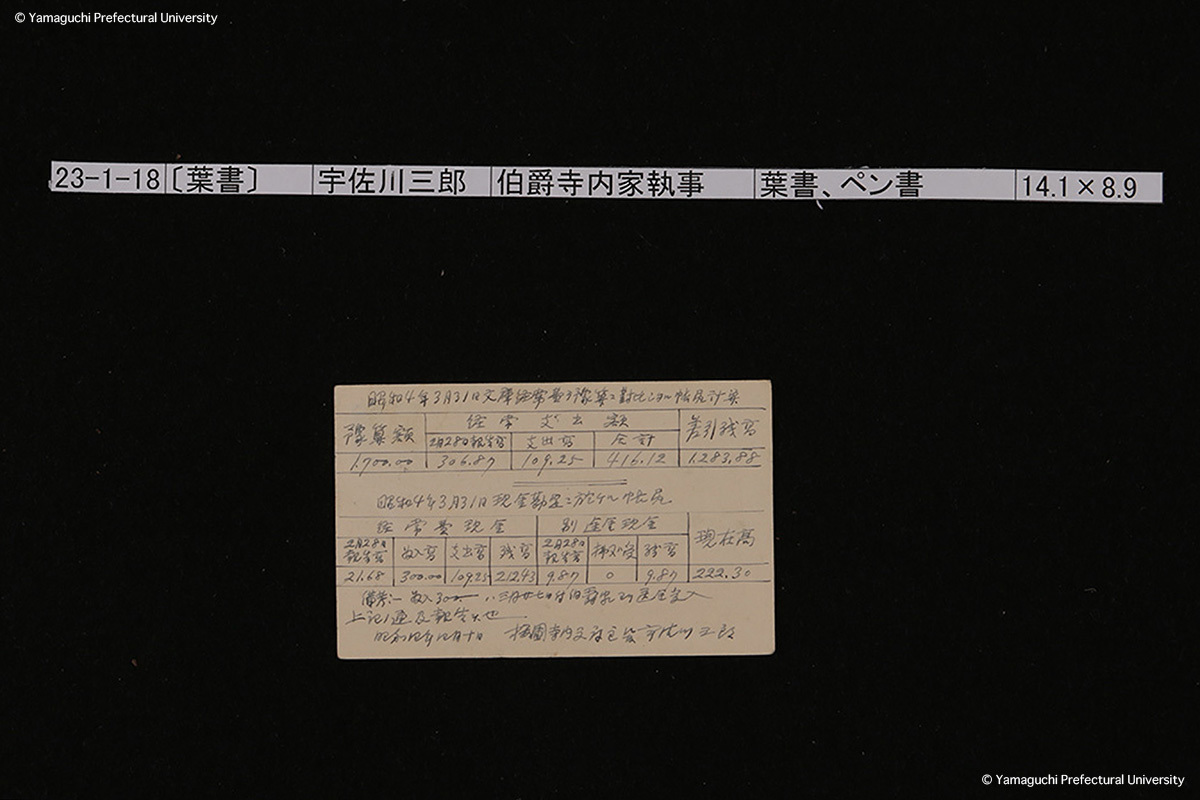 © Yamaguchi Prefectural University
23-1-18 〔葉書〕 宇佐川三郎 伯爵寺内家執事 葉書、ペン書 14.1×8.9
昭和4年3月31日文庫経常費予算ニ対比シタル帳尻計算
豫算額 経常支出額 差引残高
2月28日報告高 支出高 合計
1.700.00 306.87 109.25 416.12 1.283.88
昭和4年3月31日現金勘定ニ於ケル帳尻
経常費現金 別途金現金 現在高
2月28日報告高 収入高 支出高 残高 2月28日報告高 残高
21.68 300.00 109.25 212.43 9.87 0 9.87 222.30
備考 収入300
上記ノ通及報告候也
昭和四年四月十日 宇佐川三郎
© Yamaguchi Prefectural University